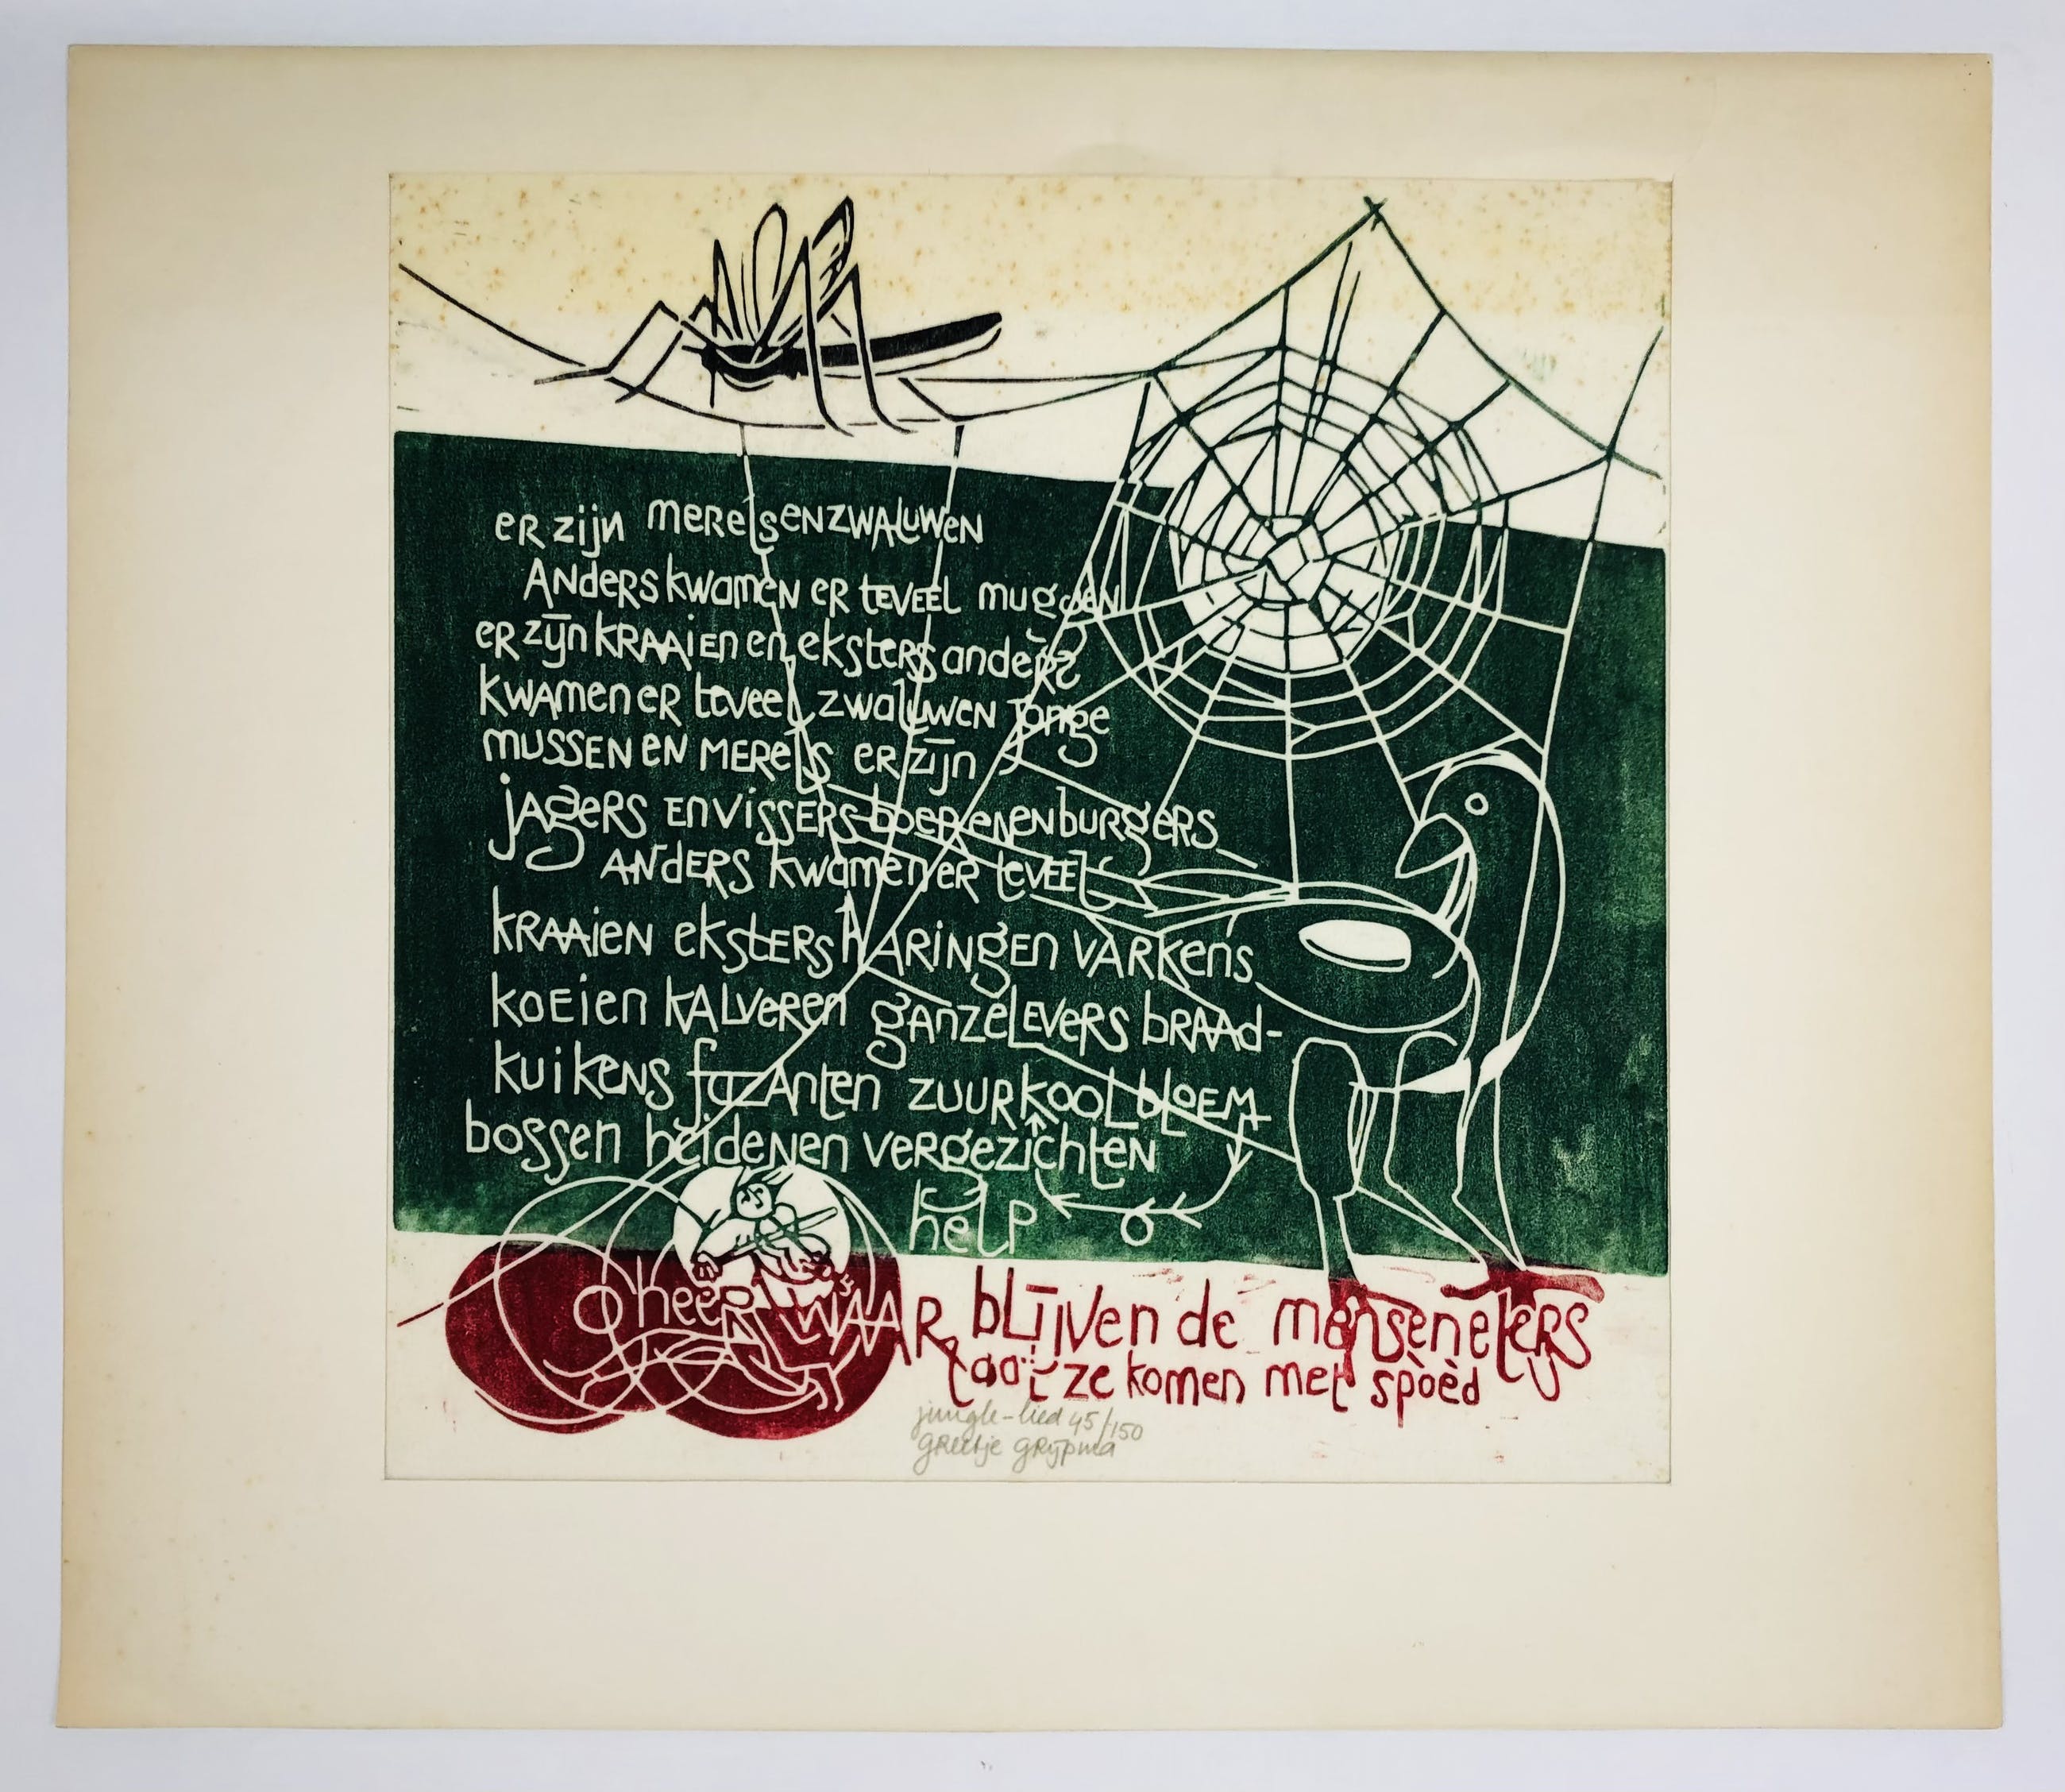 er zijn merels en zwaluwen
Anders kwamen er teveel muggen
er zijn kraaien en eksters anders
kwamen er teveel zwaluwen jonge
mussen en merels er zijn
jagers en vissers boeren en burgers
anders kwamen er teveel
kraaien eksters haringen varkens
koeien kalveren ganzelevers braad-
kuikens fazanten zuurkool bloem
bossen heidenen vergezichten
help
o heer waar blijven de menseneters
laat ze komen met spoèd
jungle-lied 45/150
greetje grijpma